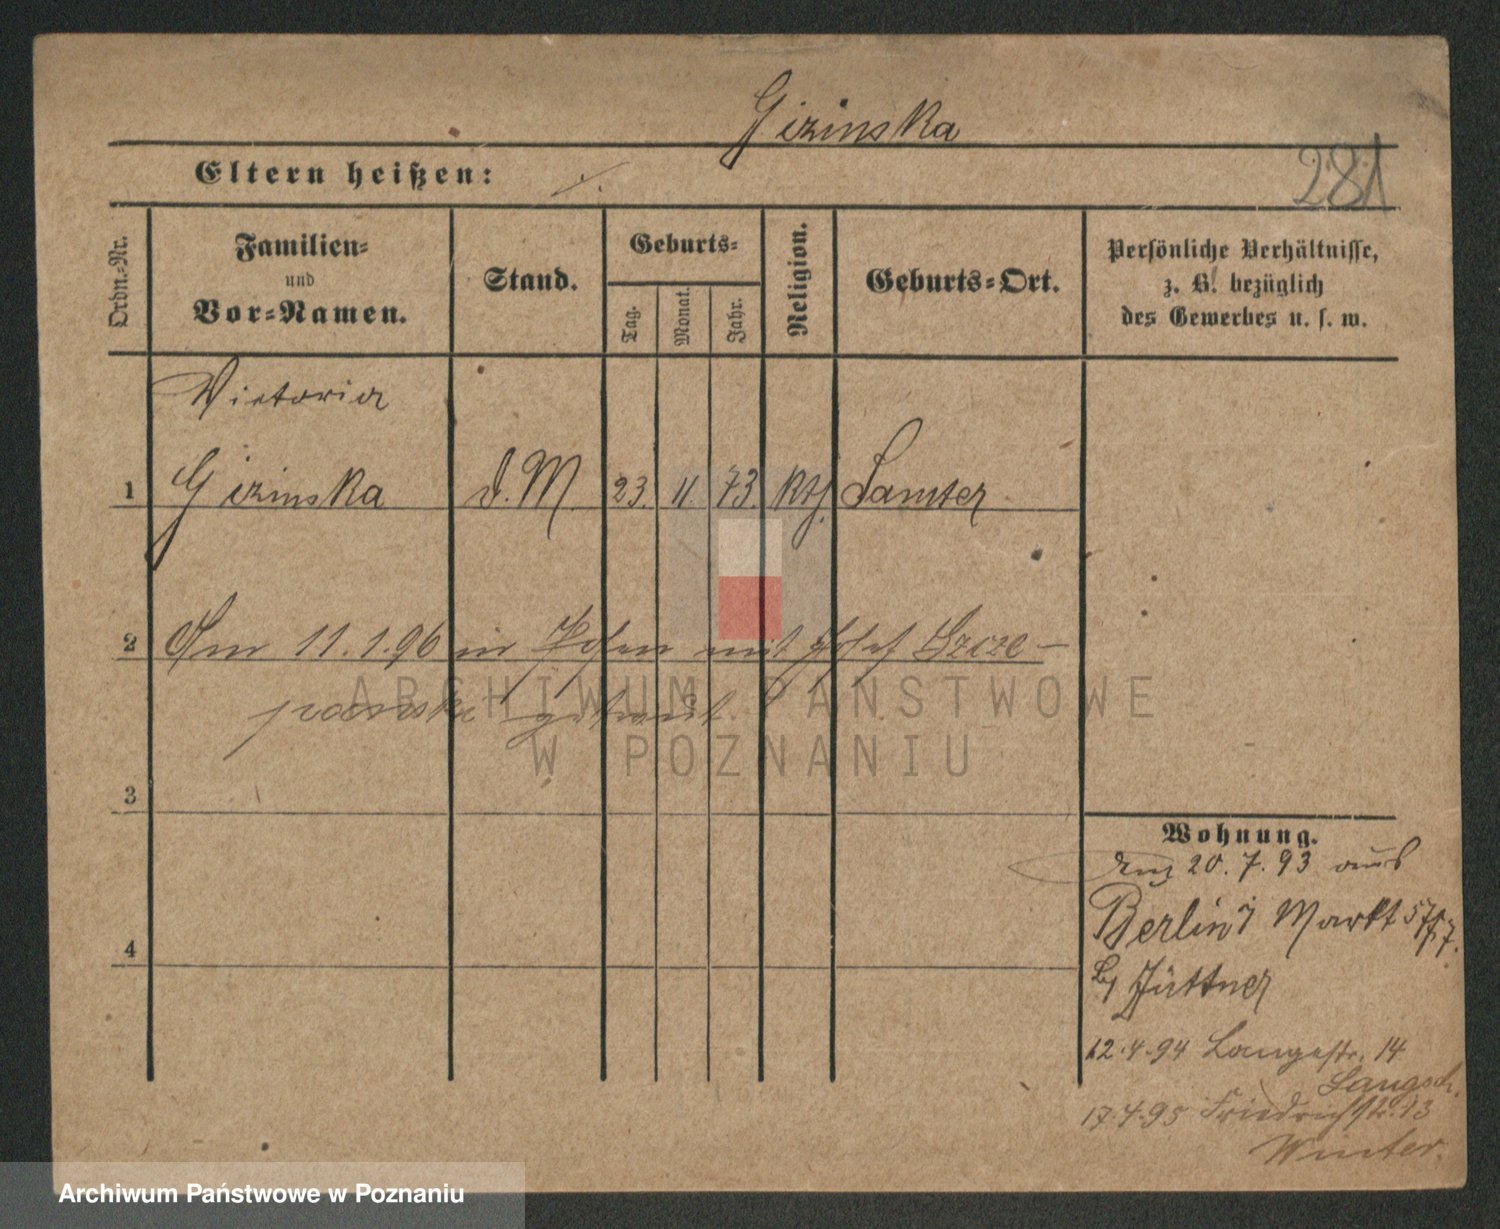 Gizinska
281
Eltern heißen: ./.
Ordn.-Nr.
Familien-
und
Vor-Namen.
Stand.
Geburts-
Tag.
Monat.
Jahr.
Religion.
Geburts-Ort.
Persönliche Verhältnisse,
z. B. bezüglich
des Gewerbes u. s. w.
Victoria
1 Gizinska d. M. 23. 11. 73. Kth. Samter
2 Am 11.1.96 in Posen mit Josef Szcze-
panski getraut.
3
4
Wohnung.
20.7.93 aus
Berlin Markt 57
b/ Jüttner
12.4.94 Langestr. 14
17.4.95 Friedrichstr. 13
Winter.
ARCHIWUM PAŃSTWOWE
W POZNANIU
Archiwum Państwowe w Poznaniu